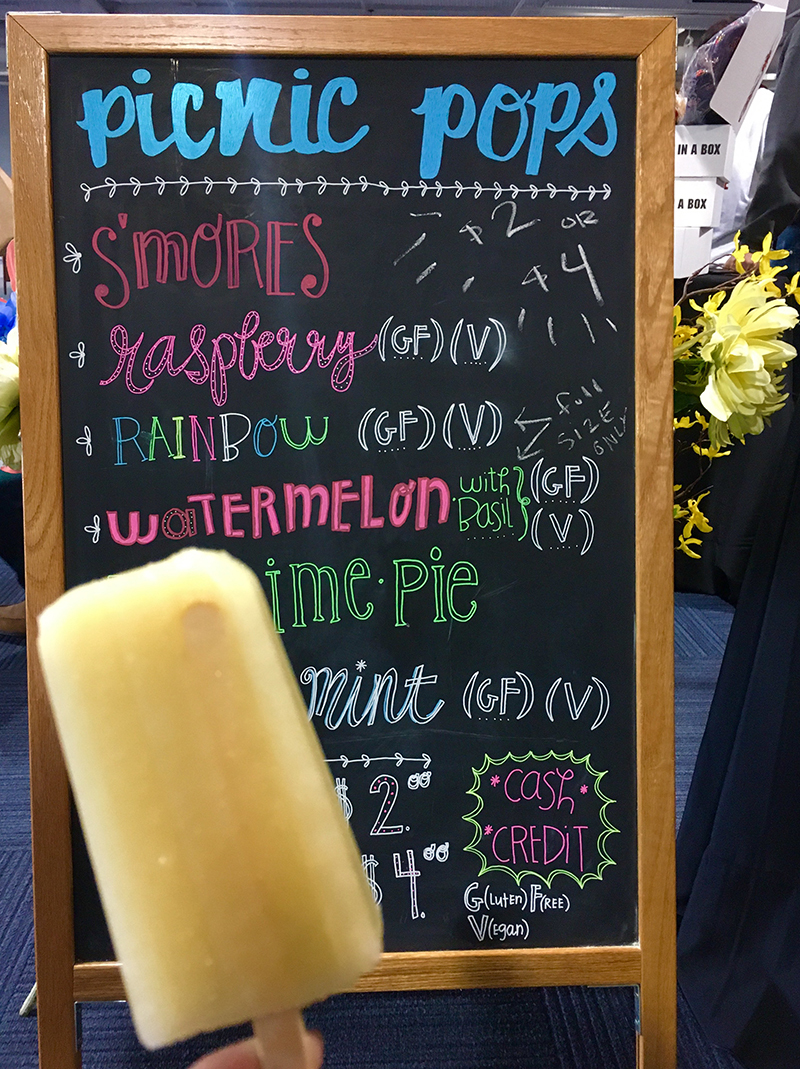 picnic pops
S'mORES
$2 OR
$4
raspberry (GF) (V)
RAINBOW (GF) (V)
full
SIZE
ONLY
waTERmELON with Basil (GF) (V)
ime·Pie
mint (GF) (V)
$2.00
$4.00
*CASH*
*CREDIT
G(luten) F(ree)
V(egan)
IN A BOX
A BOX